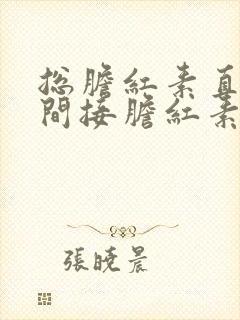 総膽紅素直
間接膽紅素
張曉晨